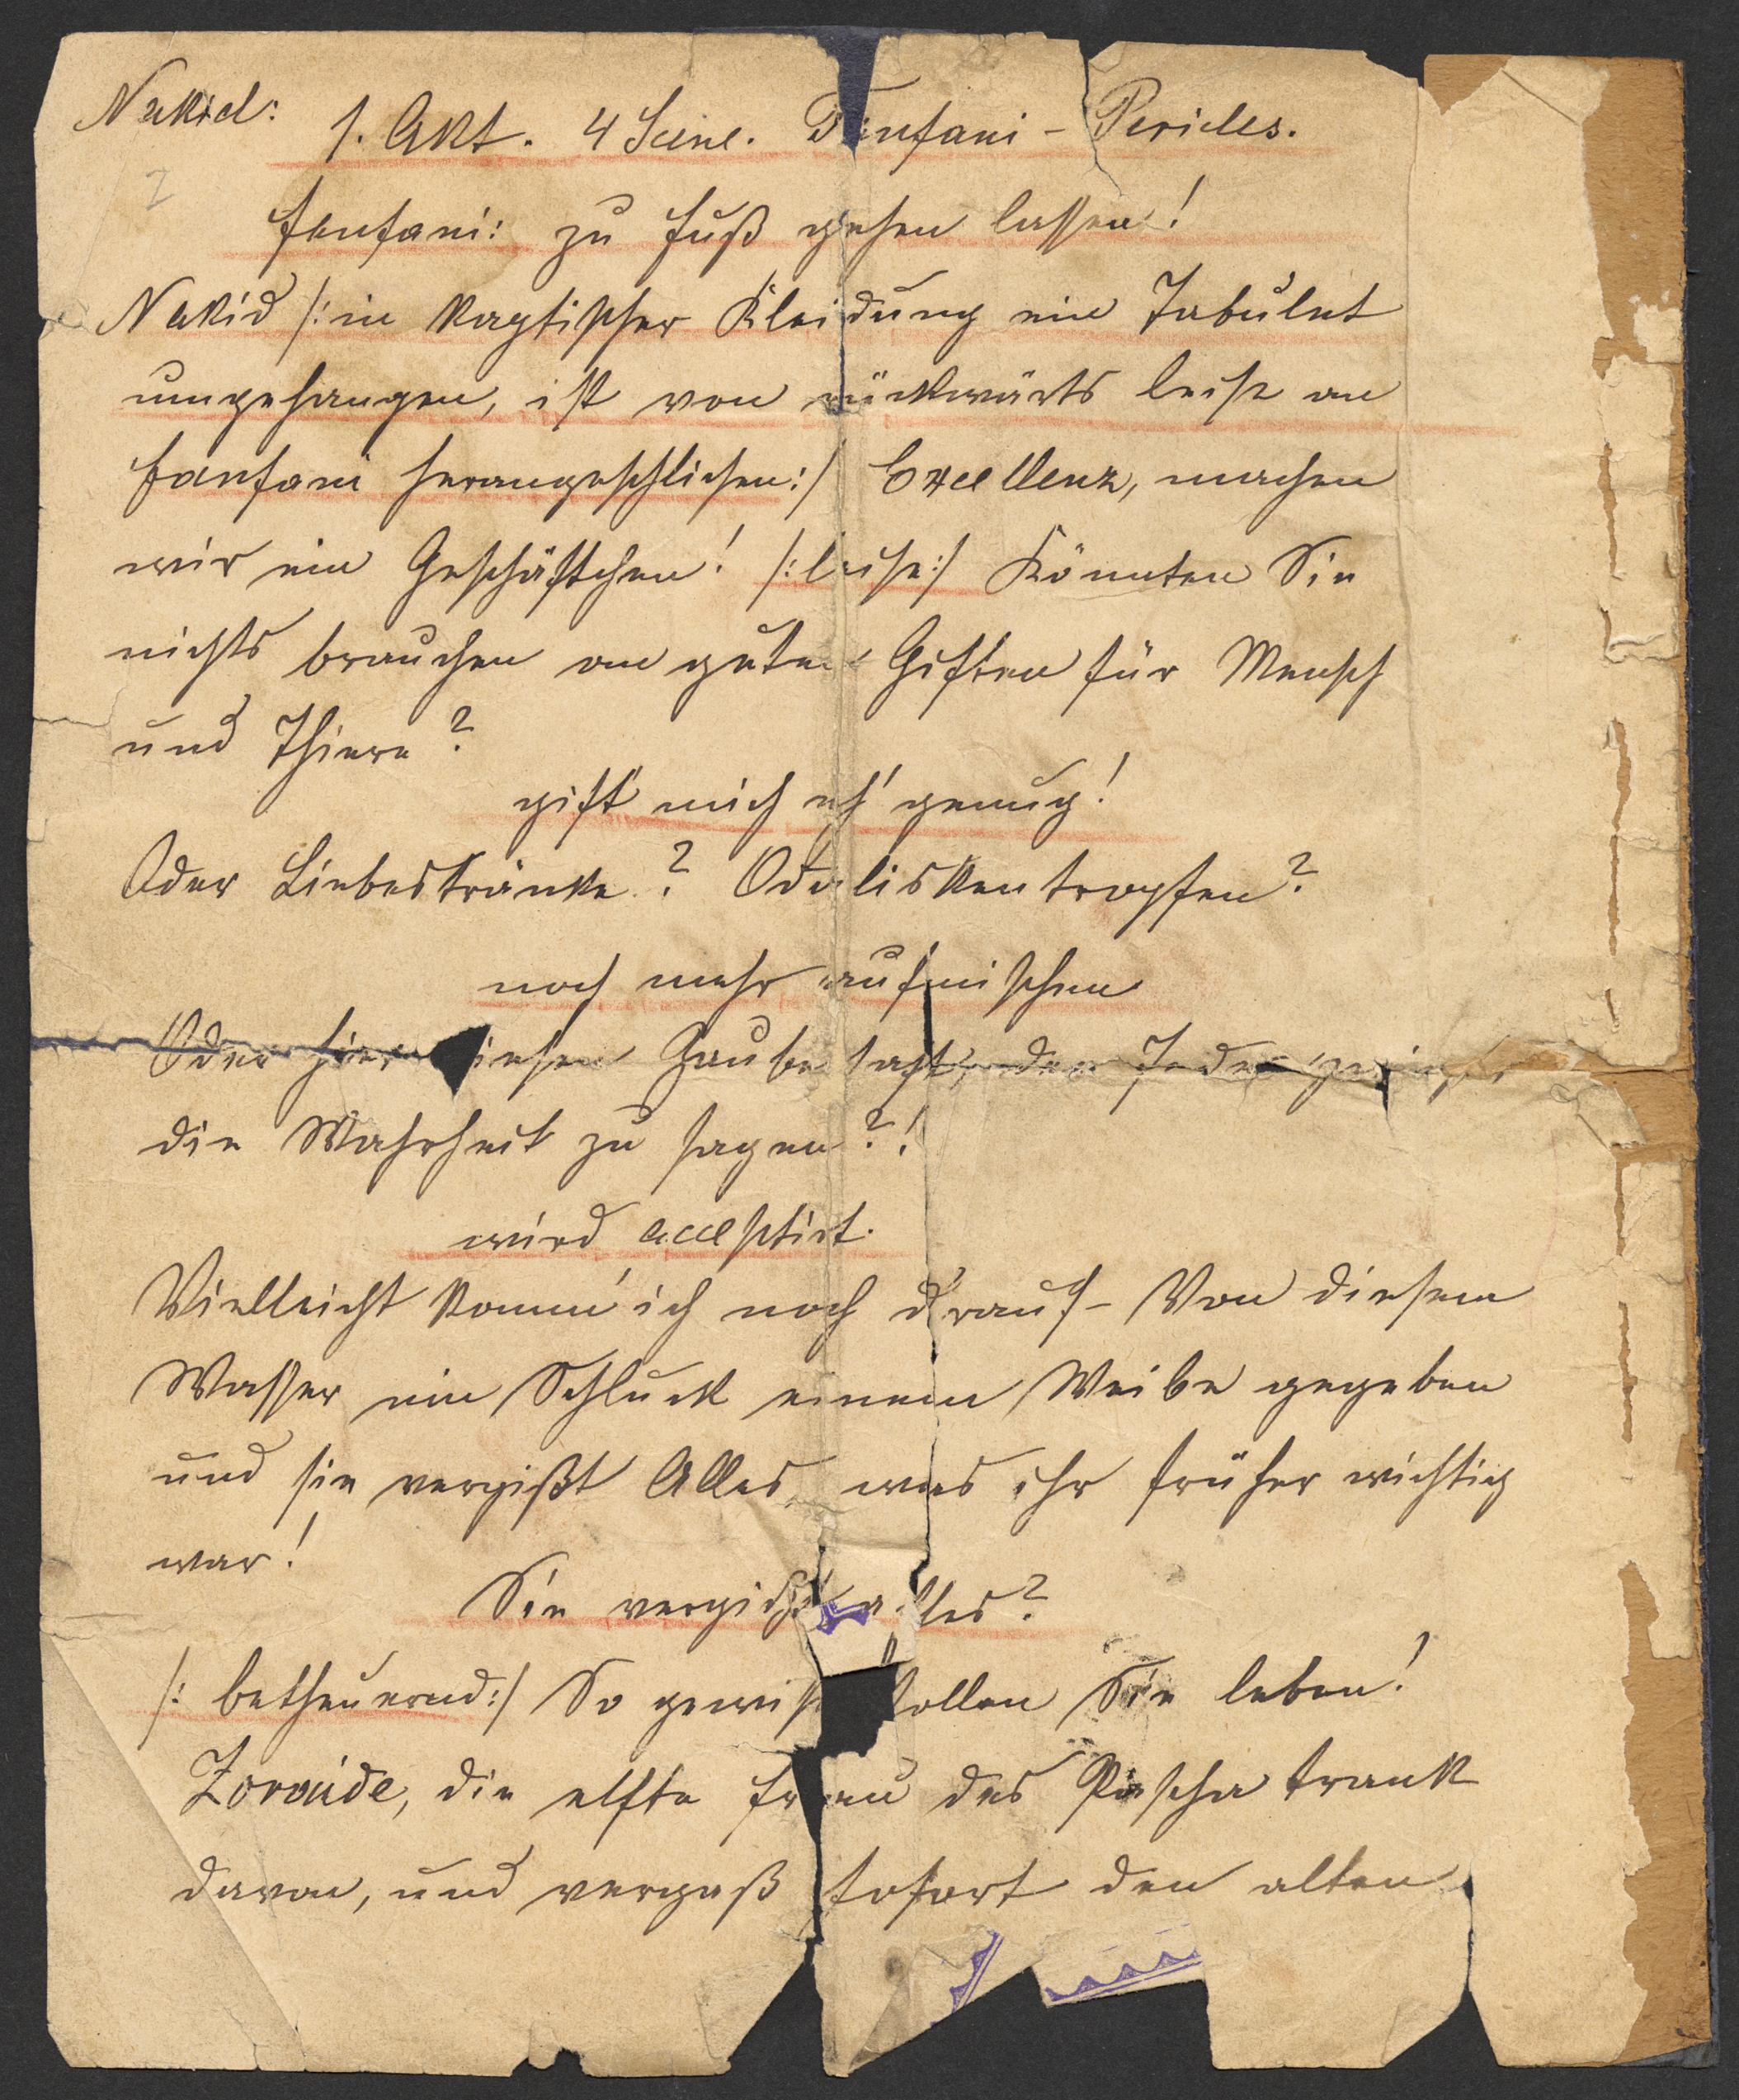 Nakid:
1. Akt. 4 Scene. Fanfani - Pericles.
Fanfani: zu Fuß gehen lassen!
Nakid /: in koptischer Kleidung ein Tabulet
umgehangen, ist von rückwärts leise an
Fanfani herangeschlichen :/ Excellenz, machen
wir ein Geschäftchen! /: leise :/ Könnten Sie
nichts brauchen an guten Giften für Mensch
und Thiere?
gift' mich eh' genug!
Oder Liebestränke? Odaliskentropfen?
noch mehr aufmischen
Oder hier diesen Zaubersaft, der Jeden zwingt,
die Wahrheit zu sagen?!
wird acceptirt.
Vielleicht komm' ich noch d'rauf - Von diesem
Wasser ein Schluck einem Weibe gegeben
und sie vergißt Alles was ihr früher wichtig
war!
Sie vergißt alles?
/: betheuernd :/ So gewiß sollen Sie leben!
Zoraide, die elfte Frau des Pascha trank
davon, und vergaß sofort den alten